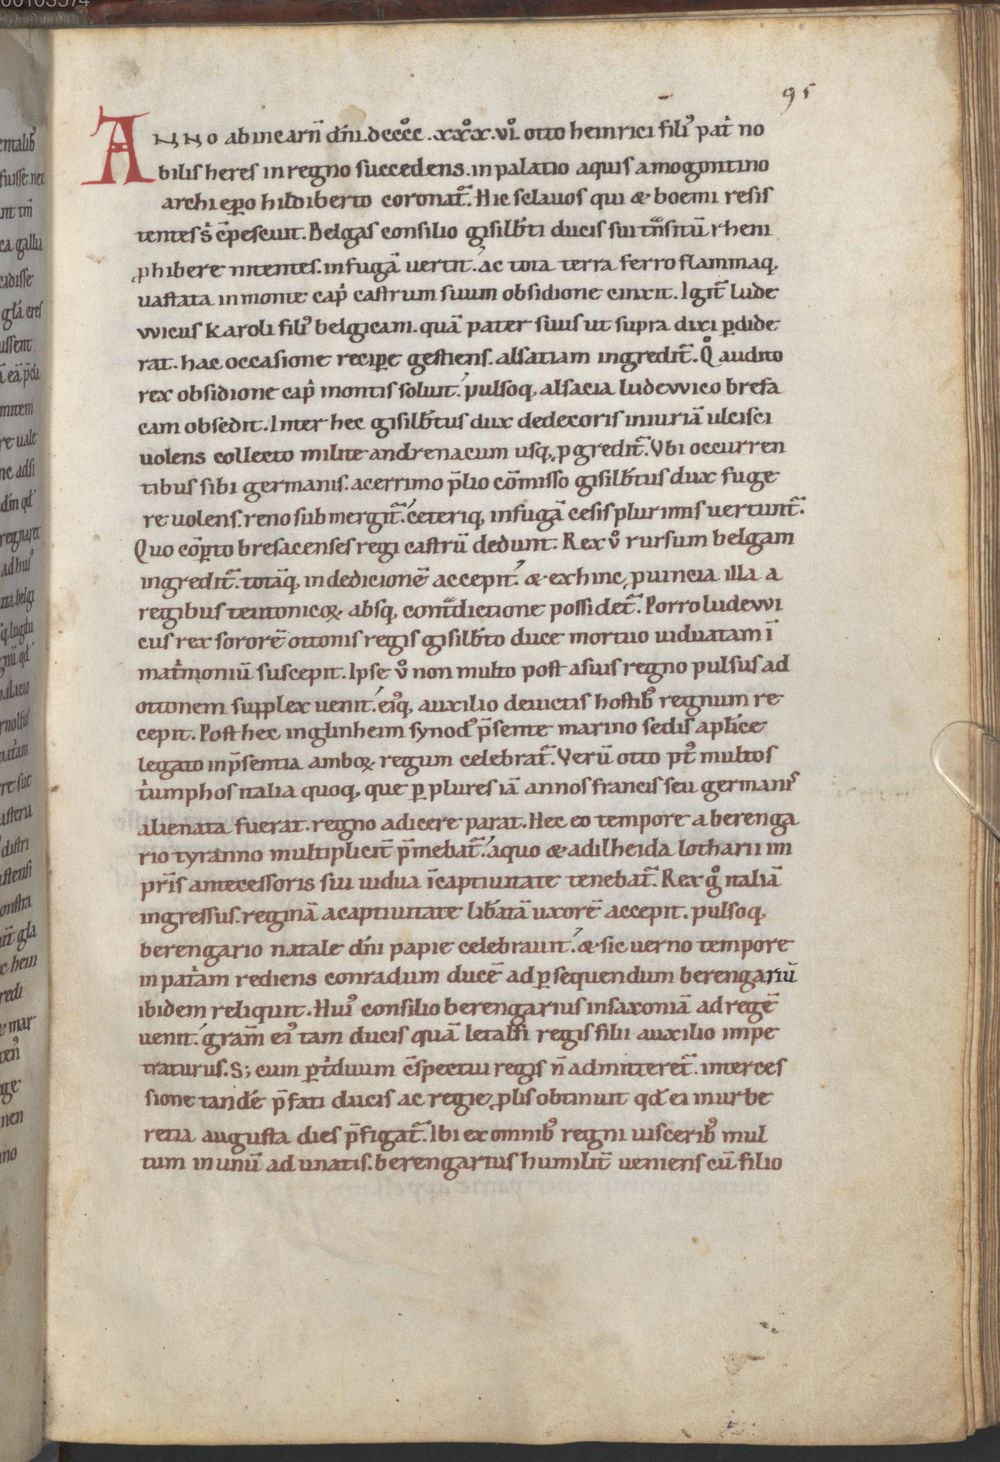 95
ANNO ab incarñ dñi. dcccc͛. xxx͛. vi͛. otto heinrici filiꝰ pat̄ no
bilis heres in regno succedens. in palatio aquis a mogontino
archiep̄o hildiberto coronat̄. Hic sclauos qui & boemi resis
tentes s̄ c̄pescuit. Belgas consilio gisilb̄ti ducis sui tn̄situ̅ rheni
ꝓhibere nitentes. in fuga̅ uertit. ac tota terra ferro flammaq;
uastata in monte cap̄ castrum suum obsidione cinxit. Igit̄ lude
vvicus karoli filiꝰ belgicam. qua̅ pater suus ut supra dixi ꝑdide
rat. hac occasione recipe gestiens. alsatiam ingredit̄. Qͦ audito
rex obsidione cap̄ montis soluit. pulsoq; alsacia ludevvico brefa
cam obsedit. Inter hec gisilb̄tus dux dedecoris iniuria̅ ulcisci
uolens collecto milite andrenacum usq; ꝓgredit̄. Vbi occurren
tibus sibi germanis. acerrimo p̄lio co̅misso gisilb̄tus dux fuge
re uolens. reno submergit̄. ceteriq; in fuga̅ cesis plurimis uertunt̄.
Quo co̅ꝑto bresacenses regi castru̅ dedunt. Rex uͦ rursum belgam
ingredit̄. tota̅q; in dedicione̅ accepit. & ex hinc ꝓuincia illa a
regibus teutonicoꝝ absq; cont̄dictione possidet̄. Porro ludevvi
cus rex sorore̅ ottonis regis gisilb̄to duce mortuo uiduatam i̅
mat̄moniu̅ suscepit. Ipse uͦ non multo post a suis regno pulsus ad
ottonem supplex uenit. eiꝰq; auxilio deuictis hostibꝰ regnum re
cepit. Post hec inglinheim synodꝰ p̄sente marino sedis aplice
legato in p̄sentia amboꝝ regum celebrat̄. Veru̅ otto pꝰt multos
t̄umphos italia quoq; que ꝑ plures ia̅ annos francis seu germanis
alienata fuerat. regno adicere parat. Hec eo tempore a berenga
rio tyranno multiplicit̄ p̄mebat̄. a quo & adilheida lotharii im
p̄ris antecessoris sui uidua i̅ captiuitate tenebat̄. Rex gͦ italia̅
ingressus. regina̅ a captiuitate lib̄ata̅ uxore̅ accepit. pulsoq;
berengario natale dñi papie celebrauit. & sic uerno tempore
in pat̄am rediens conradum duce̅ ad ꝑsequendum berengariu̅
ibidem reliquit. Huiꝰ consilio berengarius in saxonia̅ ad rege̅
uenit. gram̅ eiꝰ tam ducis qua̅ letalfi regis filii auxilio impe
traturus. S; cum ꝑt̄duum c̄spectui regis n̅ admitteret̄. interces
sione tande̅ p̄fati ducis ac regie p̄lis obtinuit qd̅ ei in urbe
retia augusta dies p̄figat̄. Ibi ex omnibꝰ regni uisceribꝰ mul
tum in unu̅ adunatis. berengarius humilit̄ ueniens cu̅ filio